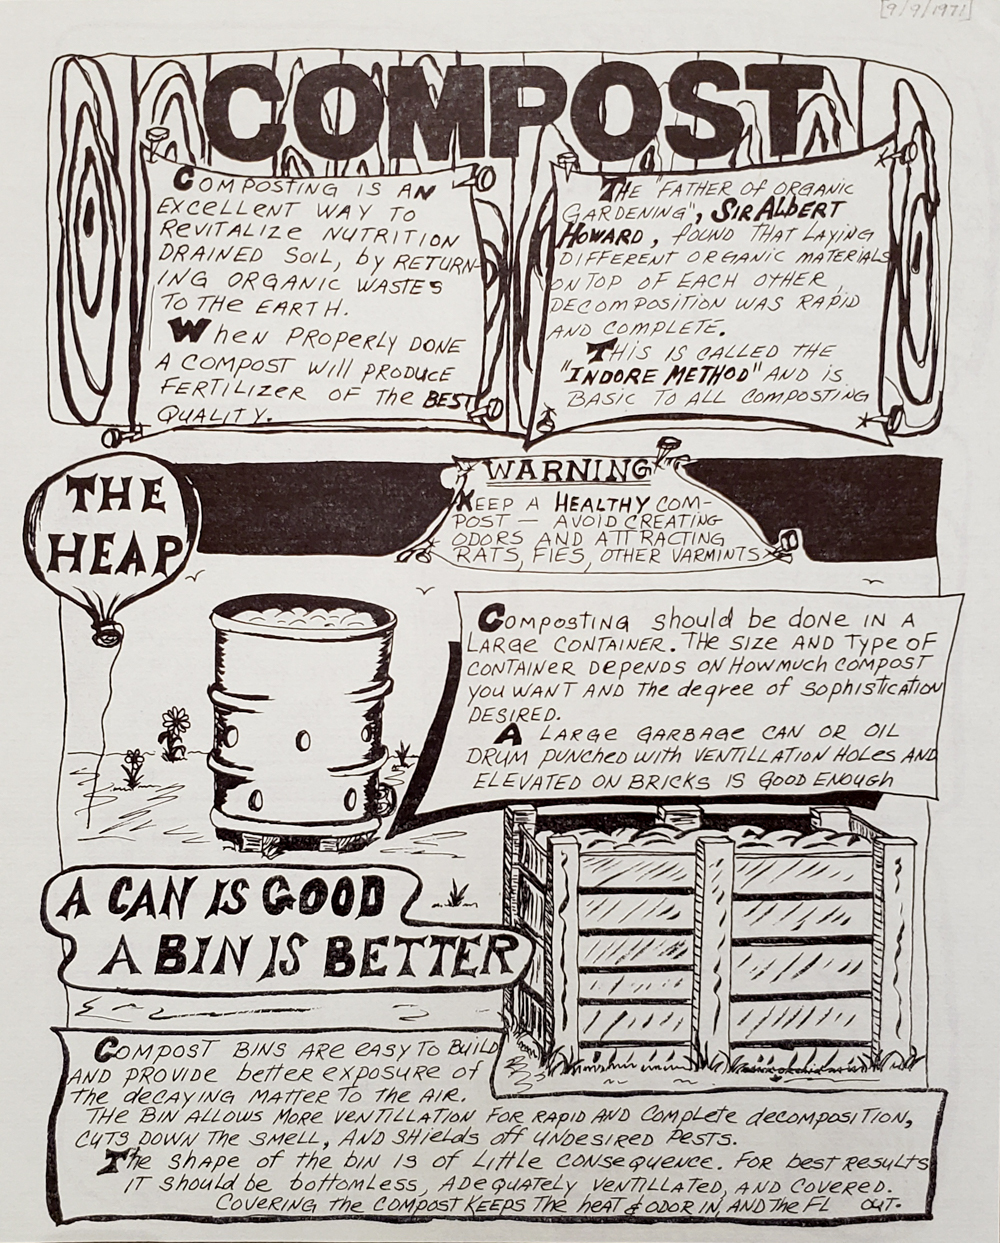 [9/9/1971]
COMPOST
COMPOSTING IS AN
EXCELLENT WAY TO
REVITALIZE NUTRITION
DRAINED SOIL, by RETURN-
ING ORGANIC WASTES
TO THE EARTH.
When PROPERLY DONE
A COMPOST Will PRODUCE
FERTILIZER OF THE BEST
QUALITY.
THE "FATHER OF ORGANIC
GARDENING", SIR ALBERT
HOWARD, FOUND THAT LAYING
DIFFERENT ORGANIC MATERIALS
ON TOP OF EACH OTHER,
DECOMPOSITION WAS RAPID
AND COMPLETE.
THIS IS CALLED THE
"INDORE METHOD" AND IS
BASIC TO ALL COMPOSTING
THE
HEAP
WARNING
KEEP A HEALTHY COM-
POST — AVOID CREATING
ODORS AND ATTRACTING
RATS, FIES, OTHER VARMINTS
COMPOSTING should be done IN A
LARGE CONTAINER. THE SIZE AND TYPE OF
CONTAINER DEPENDS ON HOW MUCH COMPOST
YOU WANT AND THE degree of sophistication
DESIRED.
A LARGE GARBAGE CAN OR OIL
DRUM PUNCHED with VENTILLATION HOLES AND
ELEVATED ON BRICKS IS GOOD ENOUGH
A CAN IS GOOD
A BIN IS BETTER
COMPOST BINS ARE EASY TO BUILD
AND PROVIDE better exposure of
the decaying MATTER TO THE AIR.
THE BIN ALLOWS MORE VENTILLATION FOR RAPID AND COMPLETE decomposition,
CUTS DOWN THE SMELL, AND SHIELDS off UNDESIRED PESTS.
The SHAPE of the bIN IS of LITTLE CONSEQUENCE. FOR best RESULTS
IT should be bottomless, ADEQUATELY VENTILLATED, AND COVERED.
COVERING the COMPOST KEEPS THE heat & ODOR IN, AND THE FL OUT.